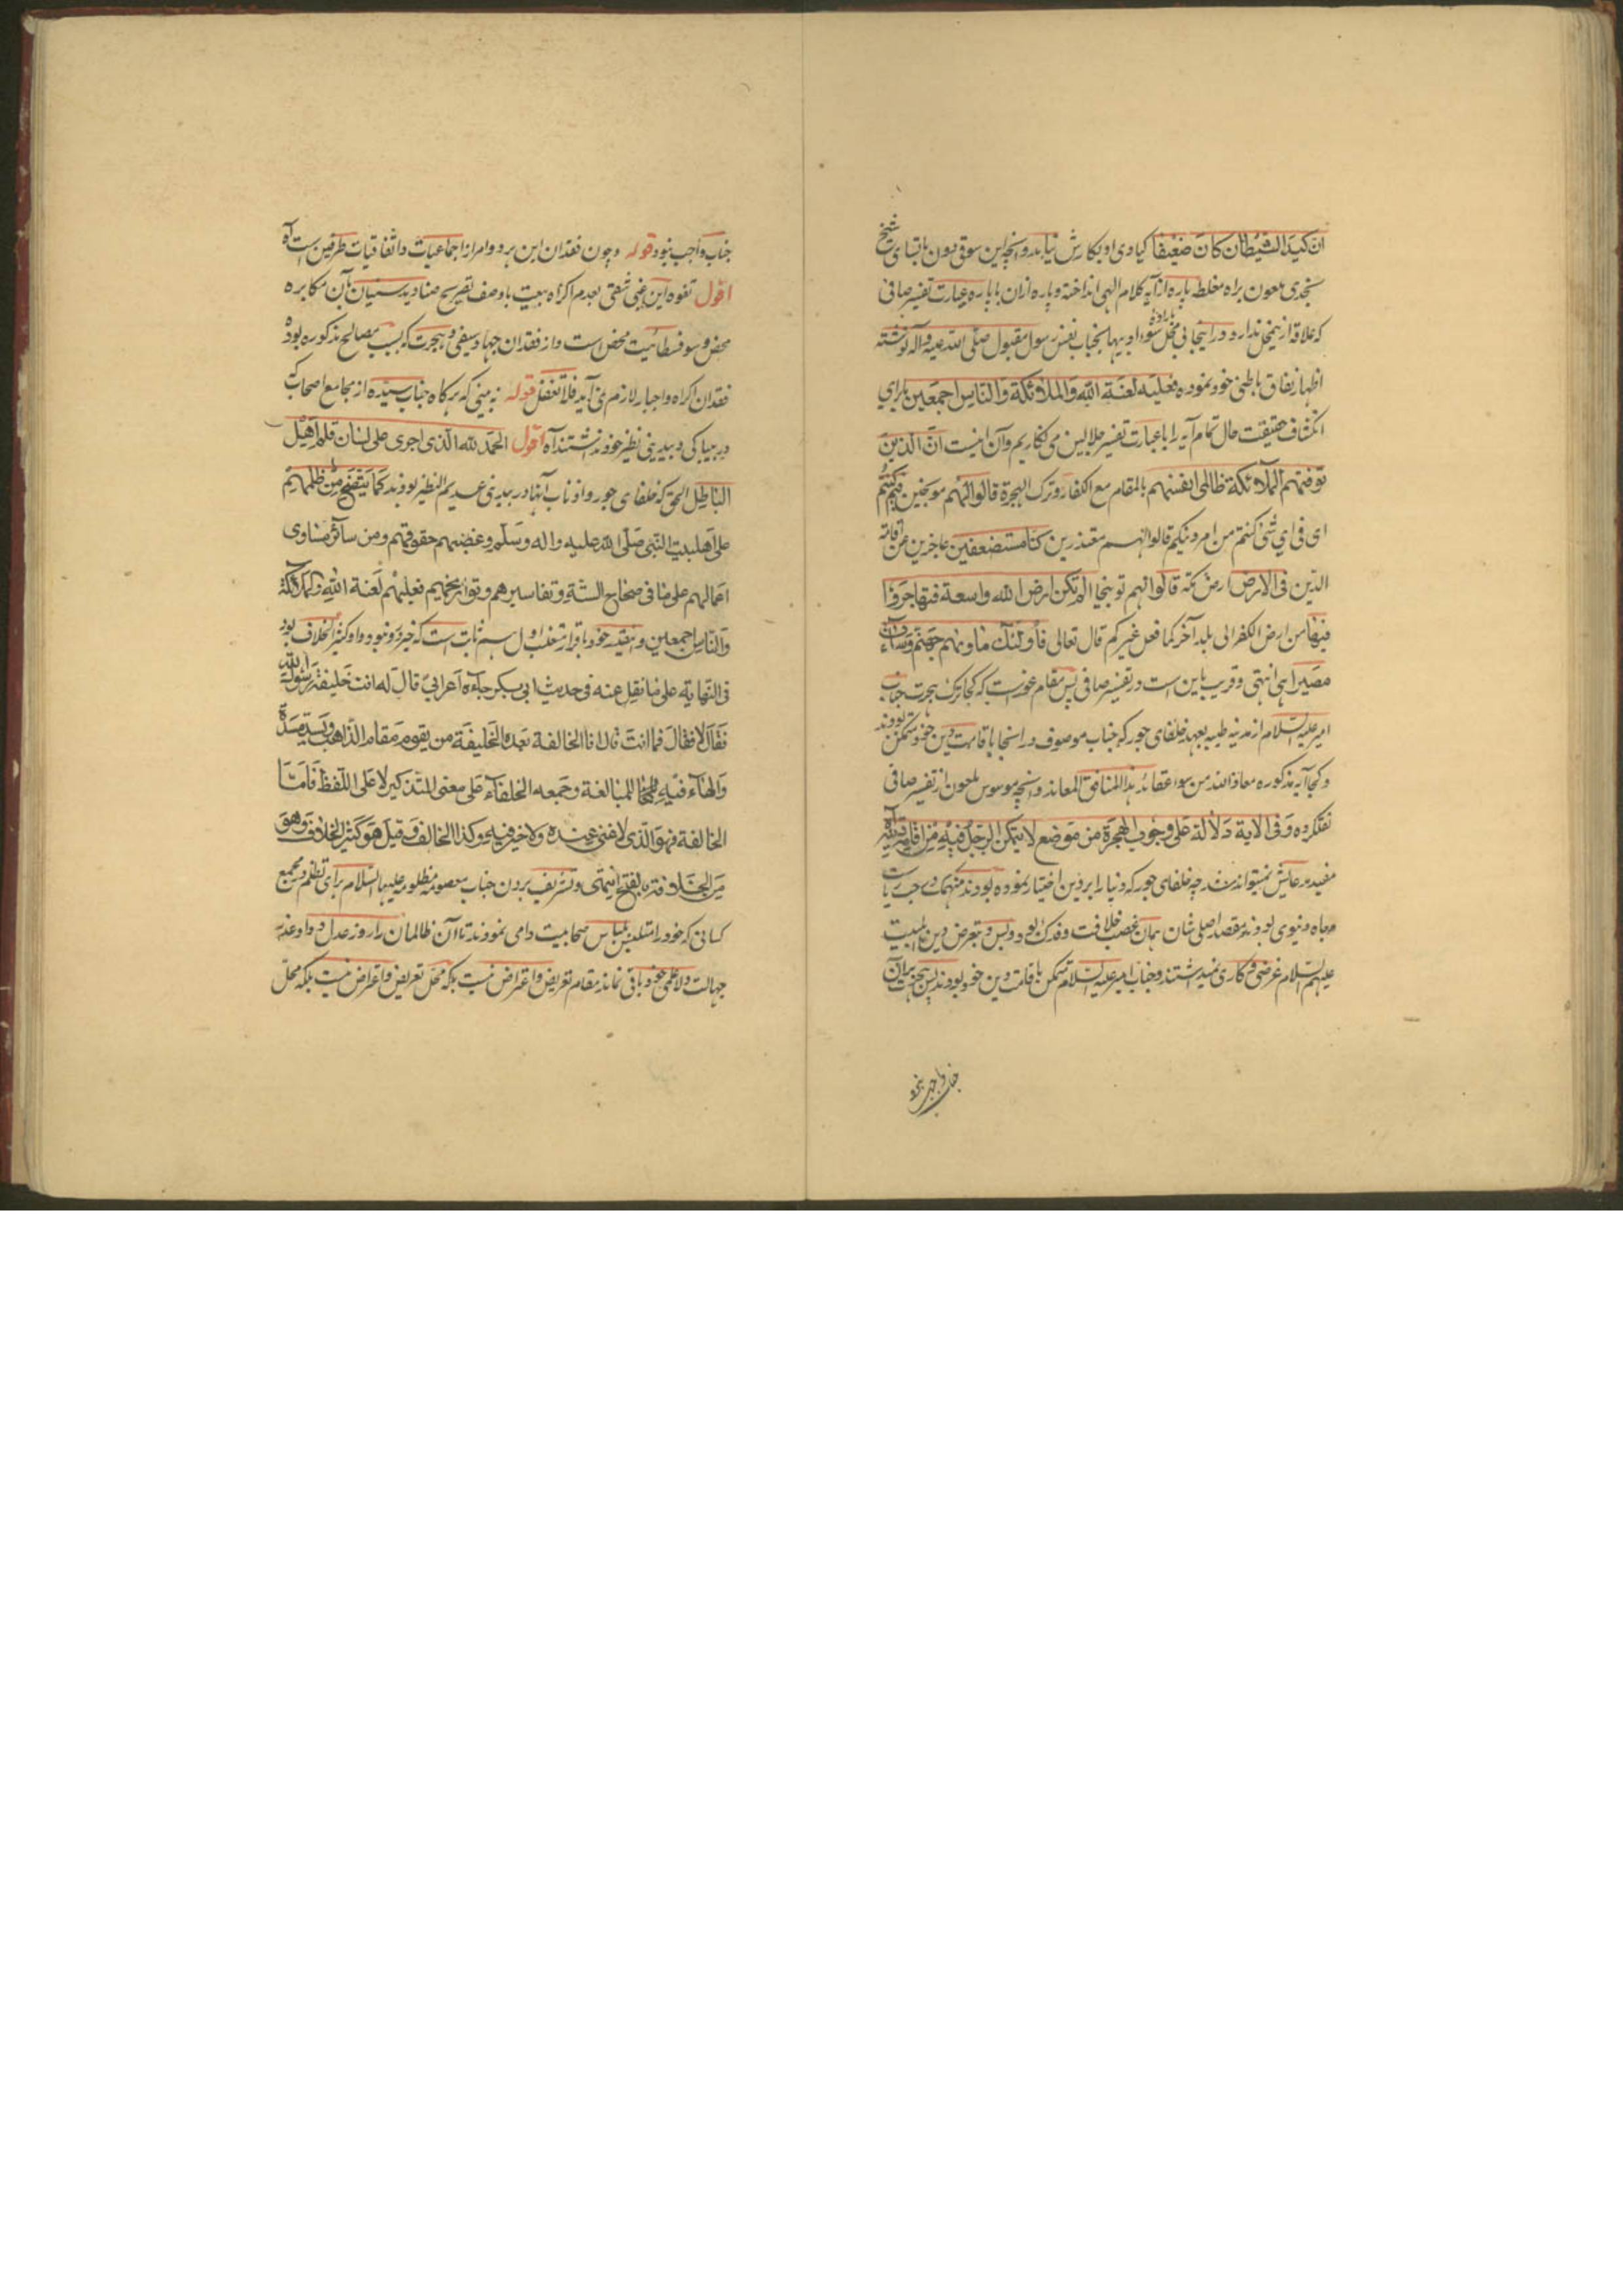 ان کیدالشیطان کان ضعیفا کیادی او بکارش نیاید و آنچه این سوقی دون باتباع شیخ
نجدی ملعون براه مغلطه پاره از آیه کلام الهی انداخته و پاره ازان با پاره عبارت تفسیر صافی
که علاقه ازینمحل ندارد و در اینجا فی محل سوء ادبیها بجناب نفس رسول مقبول صلی الله علیه و آله نوشته
اظهار نفاق باطنی خود نموده فعلیه لعنة الله والملائکة والناس اجمعین برای
انکشاف حقیقت حال تمام آیه را با عبارت تفسیر جلالین می نگاریم و آن اینست ان الذین
توفیهم الملائکة ظالمی انفسهم بالمقام مع الکفار و ترک الهجرة قالوا لهم موبخین فیم کنتم
ای فی ای شی کنتم من امر دینکم قالوا لهم معتذرین کنا مستضعفین عاجزین عن اقامة
الدین فی الارض ارض مکه قالوا لهم توبیخا الم تکن ارض الله واسعة فتهاجروا
فیها من ارض الکفر الی بلد آخر کما فعل غیرکم قال تعالی فاولئک ماویهم جهنم وساءت
مصیرا هی انتهی و قریب باین است در تفسیر صافی پس مقام غورست که کجا ترک هجرت جناب
امیر علیه السلام از مدینه طیبه بعهد خلفای جور که جناب موصوف در اسنجا باقامت دین خود متمکن بودند
و کجا آیه مذکوره معاذ الله من سوء عقائد هذا المنافق المعاند و آنچه موسوس ملعون از تفسیر صافی
نقلکرده و فی الایة دلالة علی وجوب الهجرة من موضع لا یتمکن الرجل فیه من اقامة دینه آه
مفید مدعایش نمیتواند شد چه خلفای جور که دنیا را بر دین اختیار نموده بودند منهمک در حب ریاست
و جاه دنیوی بودند مقصد اصلی شان همان غصب خلافت و فدک بود و بس و بتعرض دین اهلبیت
علیهم السلام غرضی و کاری نمیداشتند و جناب امیر علیه السلام متمکن باقامت دین خود بودند پس هجرت بران
جناب واجب نبود
جناب واجب نبود قوله و چون فقدان این هر دو امر از اجماعیات و اتفاقیات طرفین است آه
اقول تفوه این غبی شقی بعدم اکراه بیعت باوصف تصریح صنادید سنیان بآن مکابره
محض و سوفسطائیت محض است و از فقدان جهاد سیفی و هجرت که بسبب مصالح مذکوره بوده
فقدان اکراه و اجبار لازم نمی آید فلا تغفل قوله نه بینی که هرگاه جناب سیده از مجامع اصحاب که
در بیباکی و بیدینی نظیر خود نداشتند آه اقول الحمد لله الذی اجری علی لسان قلم اهل
الباطل الحق که خلفای جور و اذناب آنها در بیدینی عدیم النظیر بودند کما یتضح من ظلمهم
علی اهلبیت النبی صلی الله علیه واله وسلم وغضبهم حقوقهم ومن سائر مساوی
اعمالهم علی ما فی صحاح السنة وتفاسیرهم وتواریخهم فعلیهم لعنة الله والملائکة
والناس اجمعین و بیدینی خود باقرار متغلب اول هم ثابت است که خیر درو نبود و او کثیر الخلاف بود
فی النهایة علی ما نقل عنه فی حدیث ابی بکر جاءه اعرابی قال له انت خلیفة رسول الله
فقال لا فقال فما انت قال انا الخالفة بعده الخلیفة من یقوم مقام الذاهب ویسد مسده
والهاء فیه للمبالغة وجمعه الخلفاء علی معنی التذکیر لا علی اللفظ فاما
الخالفة فهو الذی لا غنی عنده ولا خیر فیه وکذا الخالف وقیل هو کثیر الخلاف وهو
من الخلافة بالفتح انتهی و تشریف بردن جناب معصومه مظلومه علیها السلام برای تظلم در مجمع
کسانی که خود را متلبس بلباس صحابیت وامی نمودند تا آن ظالمان را روز عدل و داد عذر
جهالت و لاعلمی خود باقی نماند مقام تعریض و اعتراض نیست بلکه محل تعریض و اعتراض نیست بلکه محل